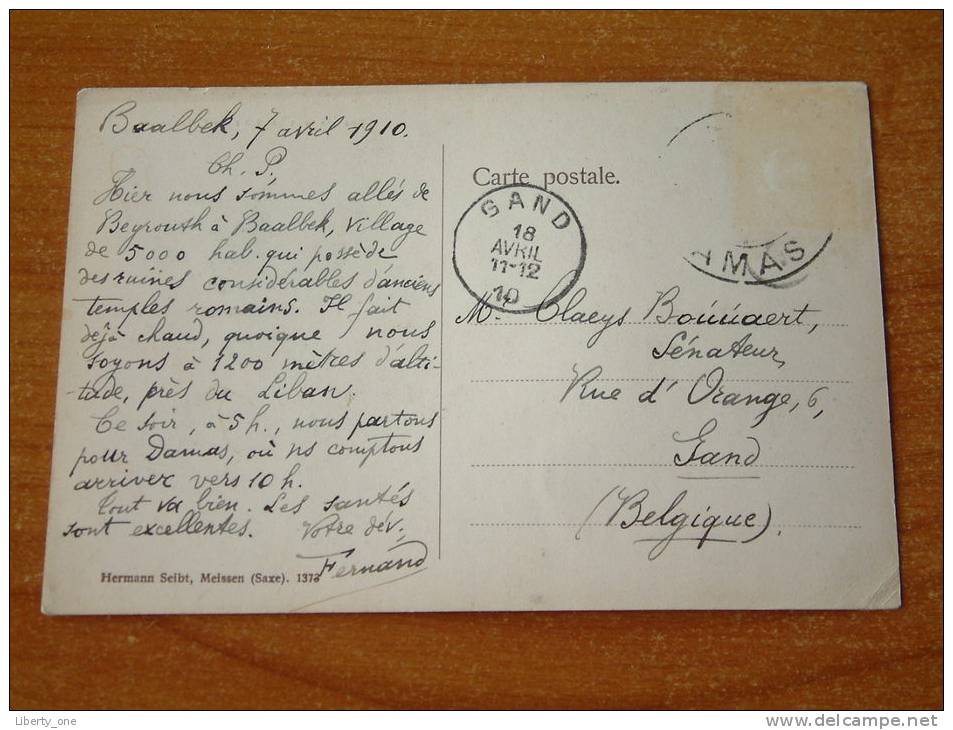 Baalbek, 7 avril 1910.
Ch. P.,
Hier nous sommes allés de
Beyrouth à Baalbek, village
de 5000 hab. qui possède
des ruines considérables d'anciens
temples romains. Il fait
déjà chaud, quoique nous
soyons à 1200 mètres d'alti-
tude, près du Liban.
Ce soir, à 5 h., nous partons
pour Damas, où ns comptons
arriver vers 10 h.
Tout va bien. Les santés
sont excellentes. Votre dév.
Fernand
Hermann Seibt, Meissen (Saxe). 1373
Carte postale.
GAND
18
AVRIL
11-12
10
MAS
Mr. Claeys Boùùaert,
Sénateur,
Rue d'Orange, 6,
Gand
(Belgique).
Liberty_one
delcampe.net